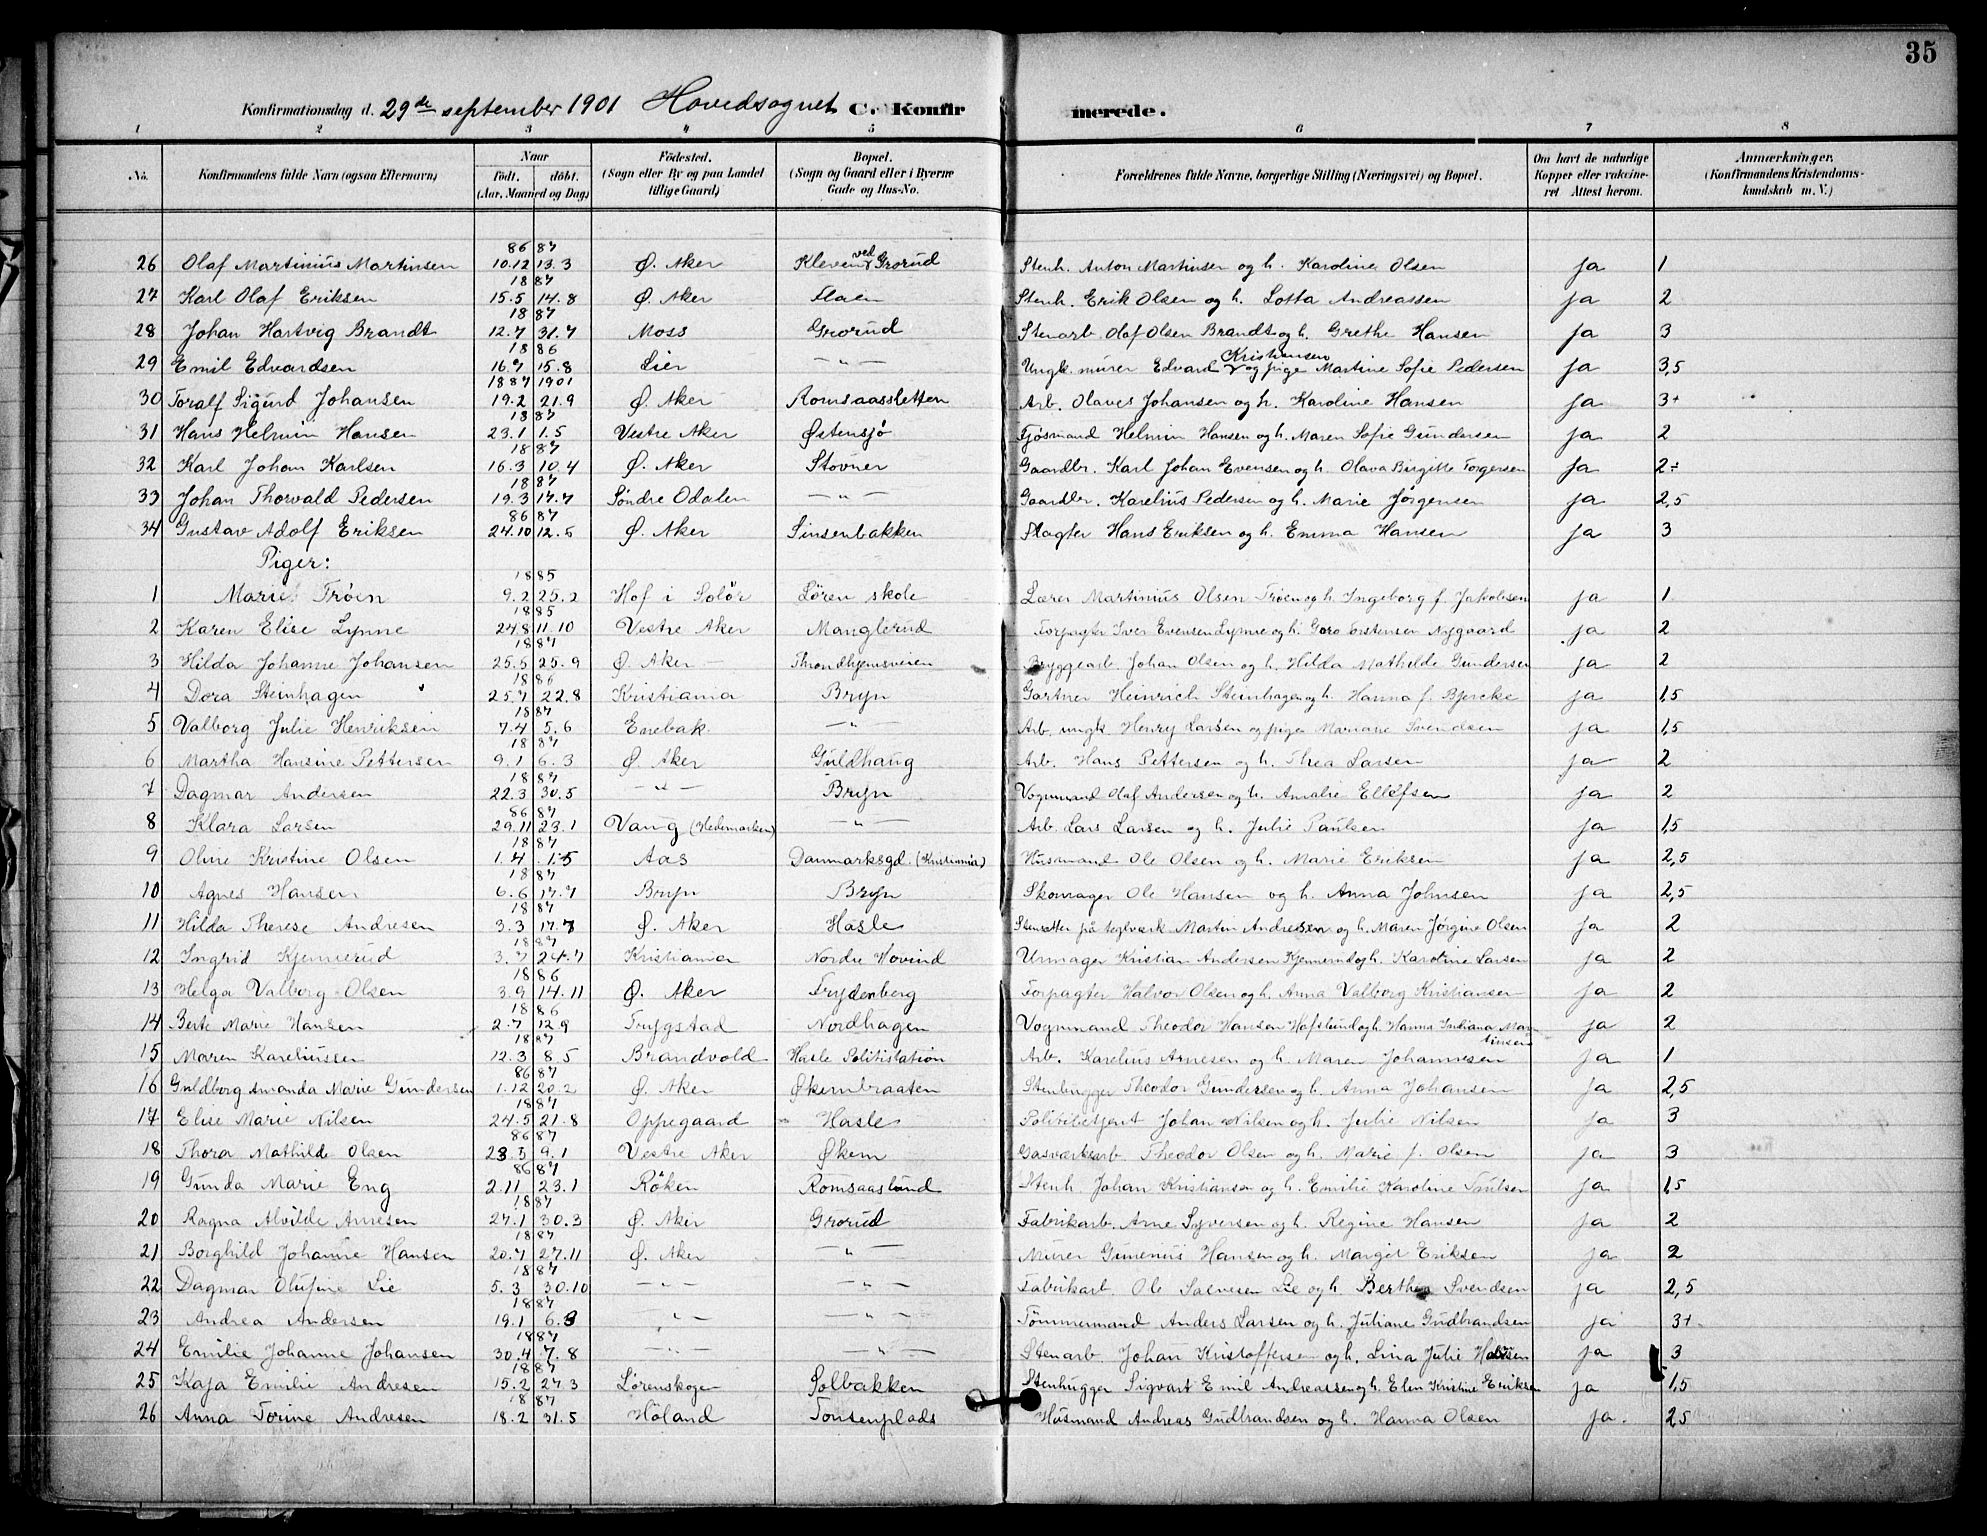 35
Konfirmationsdag d. 29de september 1901 Hovedsognet C. Konfirmerede.
1 2 3 4 5 6 7 8
No. Konfirmandens fulde Navn (ogsaa Efternavn) Naar født. døbt. (Aar, Maaned og Dag) Fødested. (Sogn eller By og paa Landet tillige Gaard) Bopæl. (Sogn og Gaard eller i Byerne Gade og Hus-No. Forældrenes fulde Navne, borgerlige Stilling (Næringsvei) og Bopæl. Om havt de naturlige Kopper eller vaccineret Attest herom. Anmærkninger. (Konfirmandens Kristendomskundskab m. V.)
86 87
26 Olaf Martinius Martinsen 10.12 13.3 Ø. Aker Kleven ved Grorud Stenh. Anton Martinsen og h. Karoline Olsen ja 1
1887
27 Karl Olaf Eriksen 15.5 14.8 Ø. Aker Flaen Stenh. Erik Olsen og h. Lotta Andreassen ja 2
1887
28 Johan Hartvig Brandt 12.7 31.7 Moss Grorud Stenarb. Olaf Olsen Brandt og h. Grethe Hansen ja 3
1886
29 Emil Edvardsen 16.7 15.8 Lier — " — Ungk. murer Edvard Kristiansen og pige Martine Sofie Pedersen ja 3,5
1887 1901
30 Toralf Sigurd Johansen 19.2 21.9 Ø. Aker Romsaassletten Arb. Olaves Johansen og h. Karoline Hansen ja 3+
1887
31 Hans Helmin Hansen 23.1 1.5 Vestre Aker Østensjø Fjøsmand Helmin Hansen og h. Maren Sofie Gundersen ja 2
1887
32 Karl Johan Karlsen 16.3 10.4 Ø. Aker Stovner Gaardbr. Karl Johan Evensen og h. Olava Birgitte Torgersen ja 2÷
1887
33 Johan Thorvald Pedersen 19.3 17.7 Søndre Odalen — " — Gaardbr. Karelius Pedersen og h. Marie Jørgensen ja 2,5
86 87
34 Gustav Adolf Eriksen 24.10 12.5 Ø. Aker Sinsenbakken Slagter Hans Eriksen og h. Emma Hansen ja 3
Piger:
1885
1 Marie Trøen 9.2 25.2 Hof i Solør Løren skole Lærer Martinius Olsen Trøen og h. Ingeborg f. Jakobsen ja 1
1885
2 Karen Elise Lynne 24.8 11.10 Vestre Aker Manglerud Forpagter Iver Evensen Lynne og h. Goro Torstensen Nygaard ja 2
1887
3 Hilda Johanne Johansen 25.5 25.9 Ø. Aker Throndhjemsveien Bryggearb. Johan Olsen og h. Hilda Mathilde Gundersen ja 2
1886
4 Dora Steinhagen 25.7 22.8 Kristiania Bryn Gartner Heinrich Steinhagen og h. Hanna f. Bjercke ja 1,5
1887
5 Valborg Julie Henriksen 7.4 5.6 Enebak — " — Arb. ungk. Henry Larsen og pige Mariane Svendsen ja 1,5
1887
6 Martha Hansine Pettersen 9.1 6.3 Ø. Aker Guldhaug Arb. Hans Pettersen og h. Thea Larsen ja 2
1887
7 Dagmar Andersen 22.3 30.5 — " — Bryn Vognmand Olaf Andersen og h. Amalie Ellefsen ja 2
86 87
8 Klara Larsen 29.11 23.1 Vang (Hedemarken) — " — Arb. Lars Larsen og h. Julie Paulsen ja 1,5
1887
9 Oline Kristine Olsen 1.4 1.5 Aas Danmarksgd. (Kristiania) Husmand Ole Olsen og h. Marie Eriksen ja 2,5
1887
10 Agnes Hansen 6.6 17.7 Bryn Bryn Skomager Ole Hansen og h. Anna Johnsen ja 2,5
1887
11 Hilda Therese Andresen 3.3 17.7 Ø. Aker Hasle Stensetter på teglverk Martin Andresen og h. Maren Jørgine Olsen ja 2
1887
12 Ingrid Kjennerud 3.7 24.7 Kristiania Nordre Hovind Urmager Kristian Andersen Kjennerud og h. Karoline Larsen ja 2
1886
13 Helga Valborg Olsen 3.9 14.11 Ø. Aker Frydenberg Forpagter Halvor Olsen og h. Anna Valborg Kristiansen ja 2
1886
14 Berte Marie Hansen 2.7 12.9 Trygstad Nordhagen Vognmand Theodor Hansen Hafslund og h. Hanna Indiana Martinsen ja 2
1887
15 Maren Kareliussen 12.3 8.5 Brandvold Hasle Politistation Arb. Karelius Arnesen og h. Maren Johannesen ja 1
86 87
16 Guldborg Amanda Marie Gundersen 1.12 20.2 Ø. Aker Økernbraaten Stenhugger Theodor Gundersen og h. Anna Johansen ja 2,5
1887
17 Elise Marie Nilsen 24.5 21.8 Oppegaard Hasle Politibetjent Johan Nilsen og h. Julie Nilsen ja 3
86 87
18 Thora Mathilde Olsen 23.3 9.1 Vestre Aker Økern Gasværksarb. Theodor Olsen og h. Marie f. Olsen ja 3
86 87
19 Gunda Marie Eng 2.11 23.1 Røken Romsaaslund Stenh. Johan Kristiansen og h. Emilie Karoline Trulsen ja 1,5
1887
20 Ragna Alvilde Arnesen 27.1 30.3 Ø. Aker Grorud Fabrikarb. Arne Syversen og h. Regine Hansen ja 2
1887
21 Borghild Johanne Hansen 20.7 27.11 Ø. Aker — " — Murer Gunerius Hansen og h. Margit Eriksen ja 2
1887
22 Dagmar Olufine Lie 5.3 30.10 — " — — " — Fabrikarb. Ole Salvesen Lie og h. Berthe Svendsen ja 2,5
1887
23 Andrea Andersen 19.1 6.3 — " — — " — Tømmermand Anders Larsen og h. Juliane Gudbrandsen ja 3+
1887
24 Emilie Johanne Johansen 30.4 7.8 — " — — " — Stenarb. Johan Kristoffersen og h. Lina Julie ja 3
1887
25 Kaja Emilie Andresen 15.2 27.3 Lørenskogen Solbakken Stenhugger Sigvart Emil Andreassen og h. Elen Kristine Eriksen ja 1,5
1887
26 Anna Torine Andresen 18.2 31.5 Høland Tonsenplads Husmand Andreas Gudbrandsen og h. Hanna Olsen ja. 2,5